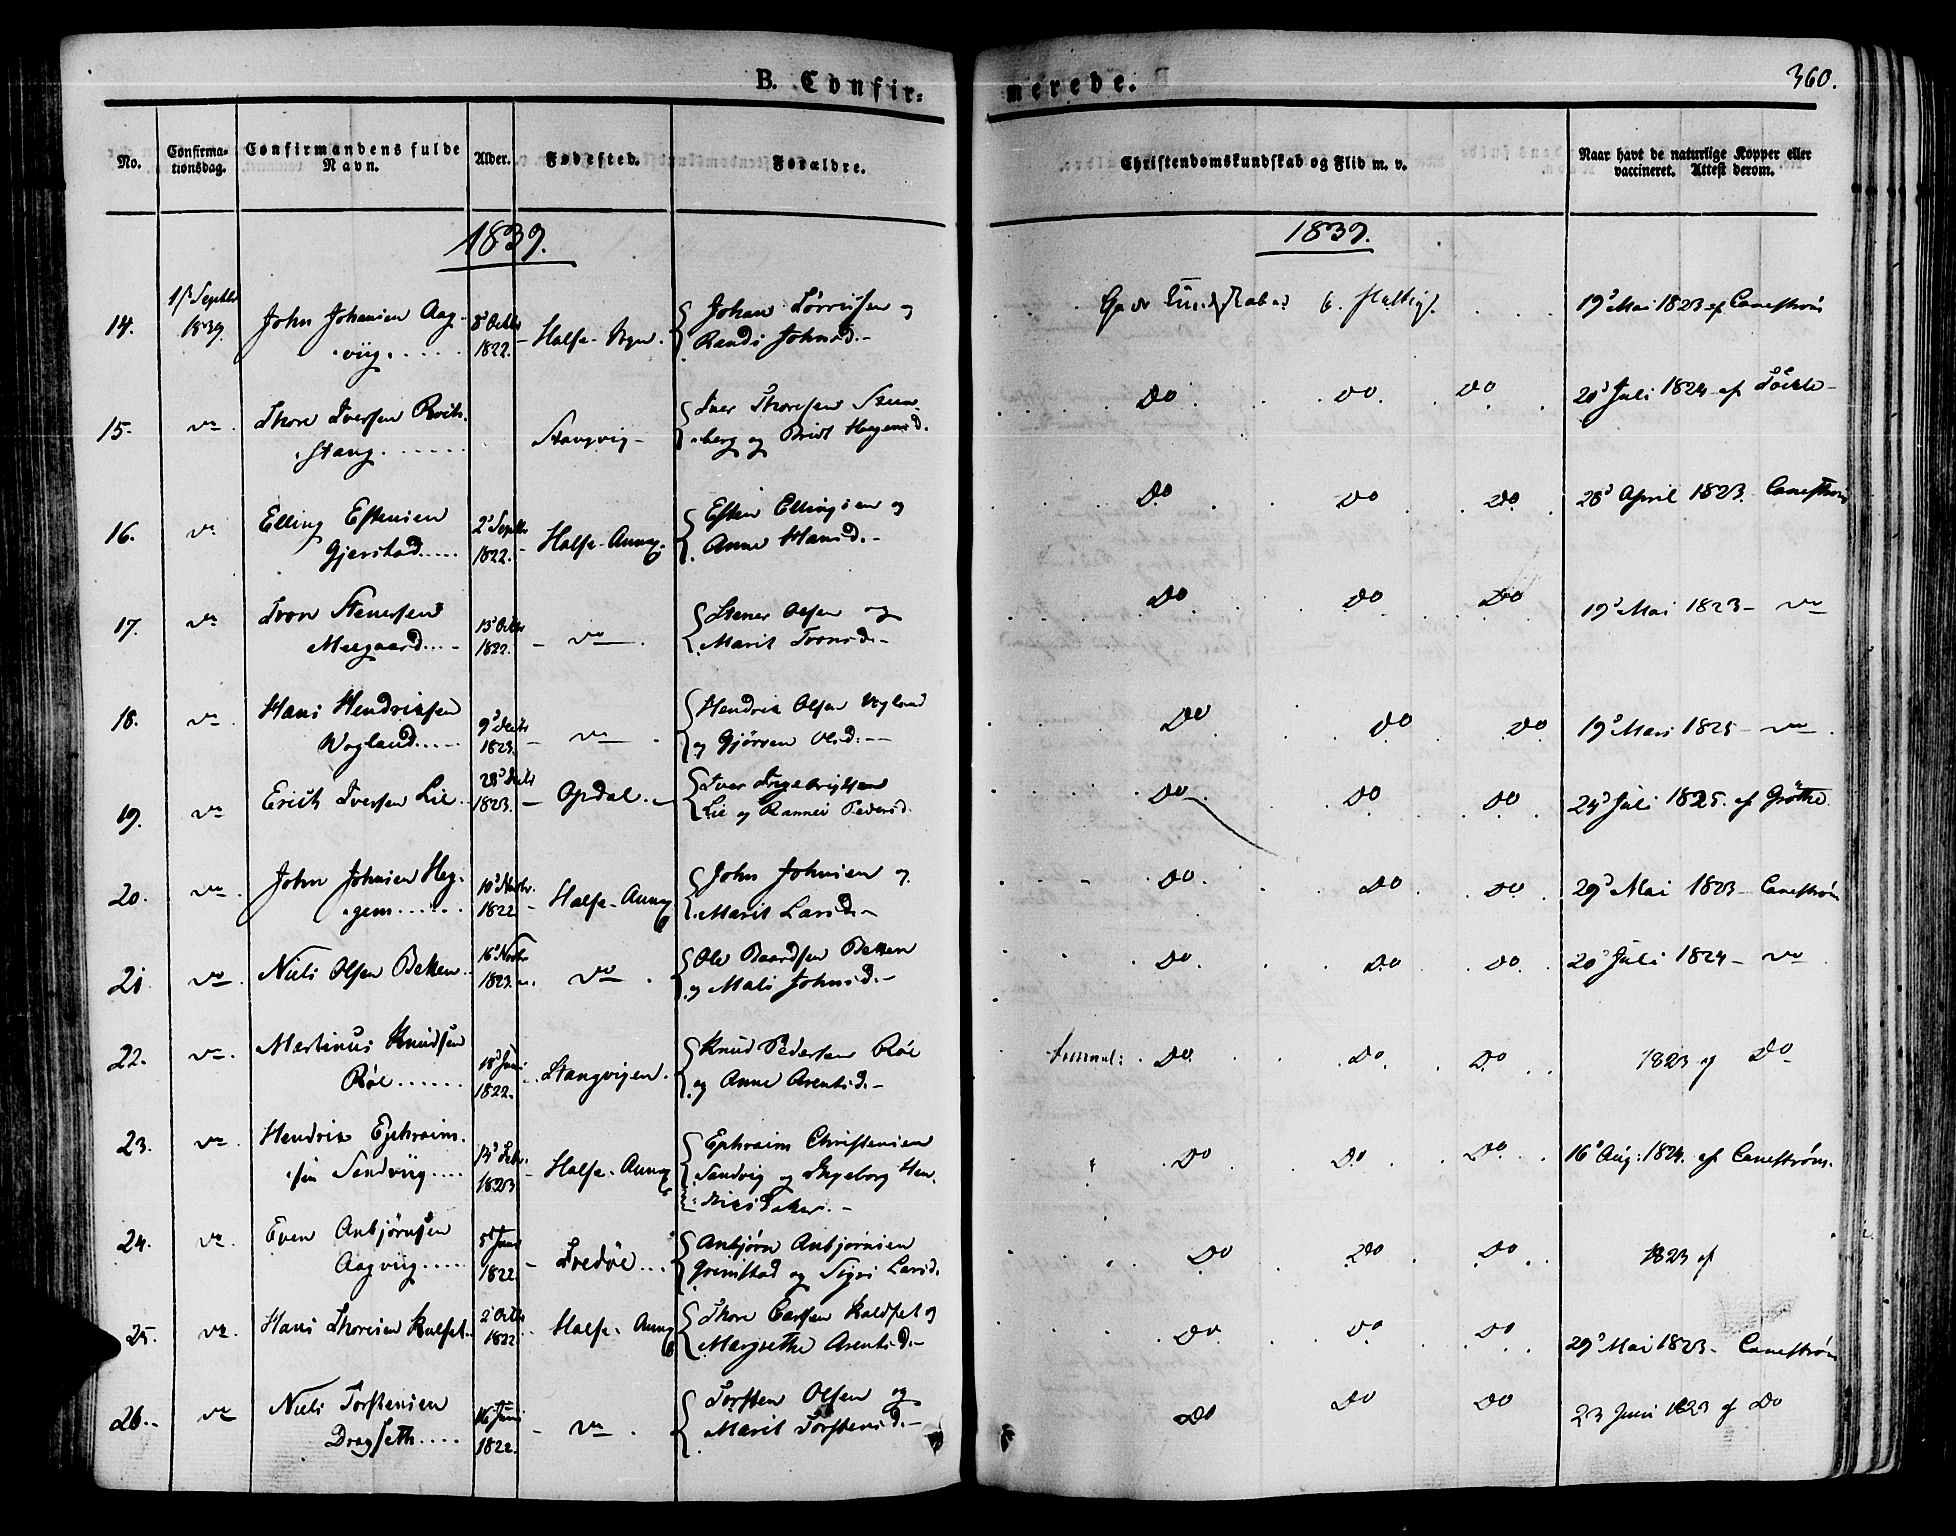 B. Confir=
merede.
360.
No.
Confirma-
tionsdag.
Confirmandens fulde
Navn.
Alder.
Fødested.
Forældre.
Christendomskundskab og Flid m. v.
Naar havt de naturlige Kopper eller
vaccineret. Attest derom.
1839.
1839.
14.
1ste Septbr
1839.
John Johansen Aag-
viig.....
8de Octbr
1822.
Halse
Johan Lørrissen og
Randi Johnsd.
Gode Kundskaber
19de Mai 1823 af Canestrøm
15.
do
Thore Iversen
stang......
Stangvig
Iver Thoresen
berg og Bridt
Do
do
do
20de Juli 1824 af
16.
do
Elling Estensen
Gjerstad.....
2de Septbr
1822.
Halse-Annex
Esten Ellingsen og
Anne Hansd.
Do
Do
Do
28de April 1823. Canestrøm
17.
do
Iver Stenersen
Meegaard....
13de Octbr
1822.
do
Stener Olsen og
Marit
Do
do
Do
19de Mai 1823 do
18.
do
Hans Hendriksen
Vagland.....
9de Decbr
1823.
do
Hendrik Olsen Vagland
og Gjørren Olsd.
Do
do
Do
19de Mars 1825 do
19.
do
Erich Iversen Lie..
28de Decbr
1823.
Opdal.
Iver Ingebrigtsen
Lie og Rannei Pedersd.
Do
Do
Do
24de Juli 1825. af Grøthe
20.
do
John Johnsen Heg-
gem......
10de Novbr.
1822
Halse-Annex
John Johnsen og
Marit Larsd.
Do.
Do
Do
29de Mai 1823 Canestrøm
21
do
Niels Olsen Bekken..
16de Novbr
1823.
do
Ole Baardsen Bekken
og Mali Johnsd.
Do.
Do
Do.
20de Juli 1824 do
22.
do
Martinus Knudsen
Røe......
18de Juni
1822.
Stangvigen.
Knud Pedersen Røe
og Anne Arentsd.
Do.
Do
Do
1823 af Do
23.
do
Hendrik Ephraim-
sen Sandviig....
13de Febr.
1823
Halse-Annex
Ephraim Christensen
Sandvig og Ingeborg Hen-
driksdatter.
Do
Do
Do
16de Aug: 1824. af Canestrøm.
24.
do
Even Anbjørnsen
Aagviig.....
5te Juni
1822.
Tredøe...
Anbjørn Anbjørnsen
Grimstad og Sigri Larsd.
Do
Do
Do
1823 af
25.
do
Hans Thoresen Kalset.
2de Octbr
1822
Halse-Annex
Thore Larssen Kaldset og
Margrethe Arentsd.
Do
Do
Do
29de Mai 1823 Canestrøm
26.
do
Niels Torstensen
Dragseth....
16de Juni
1822.
do
Torsten Olsen og
Marit Torstensd.
Do
Do
Do
23 Juni 1823 af Do